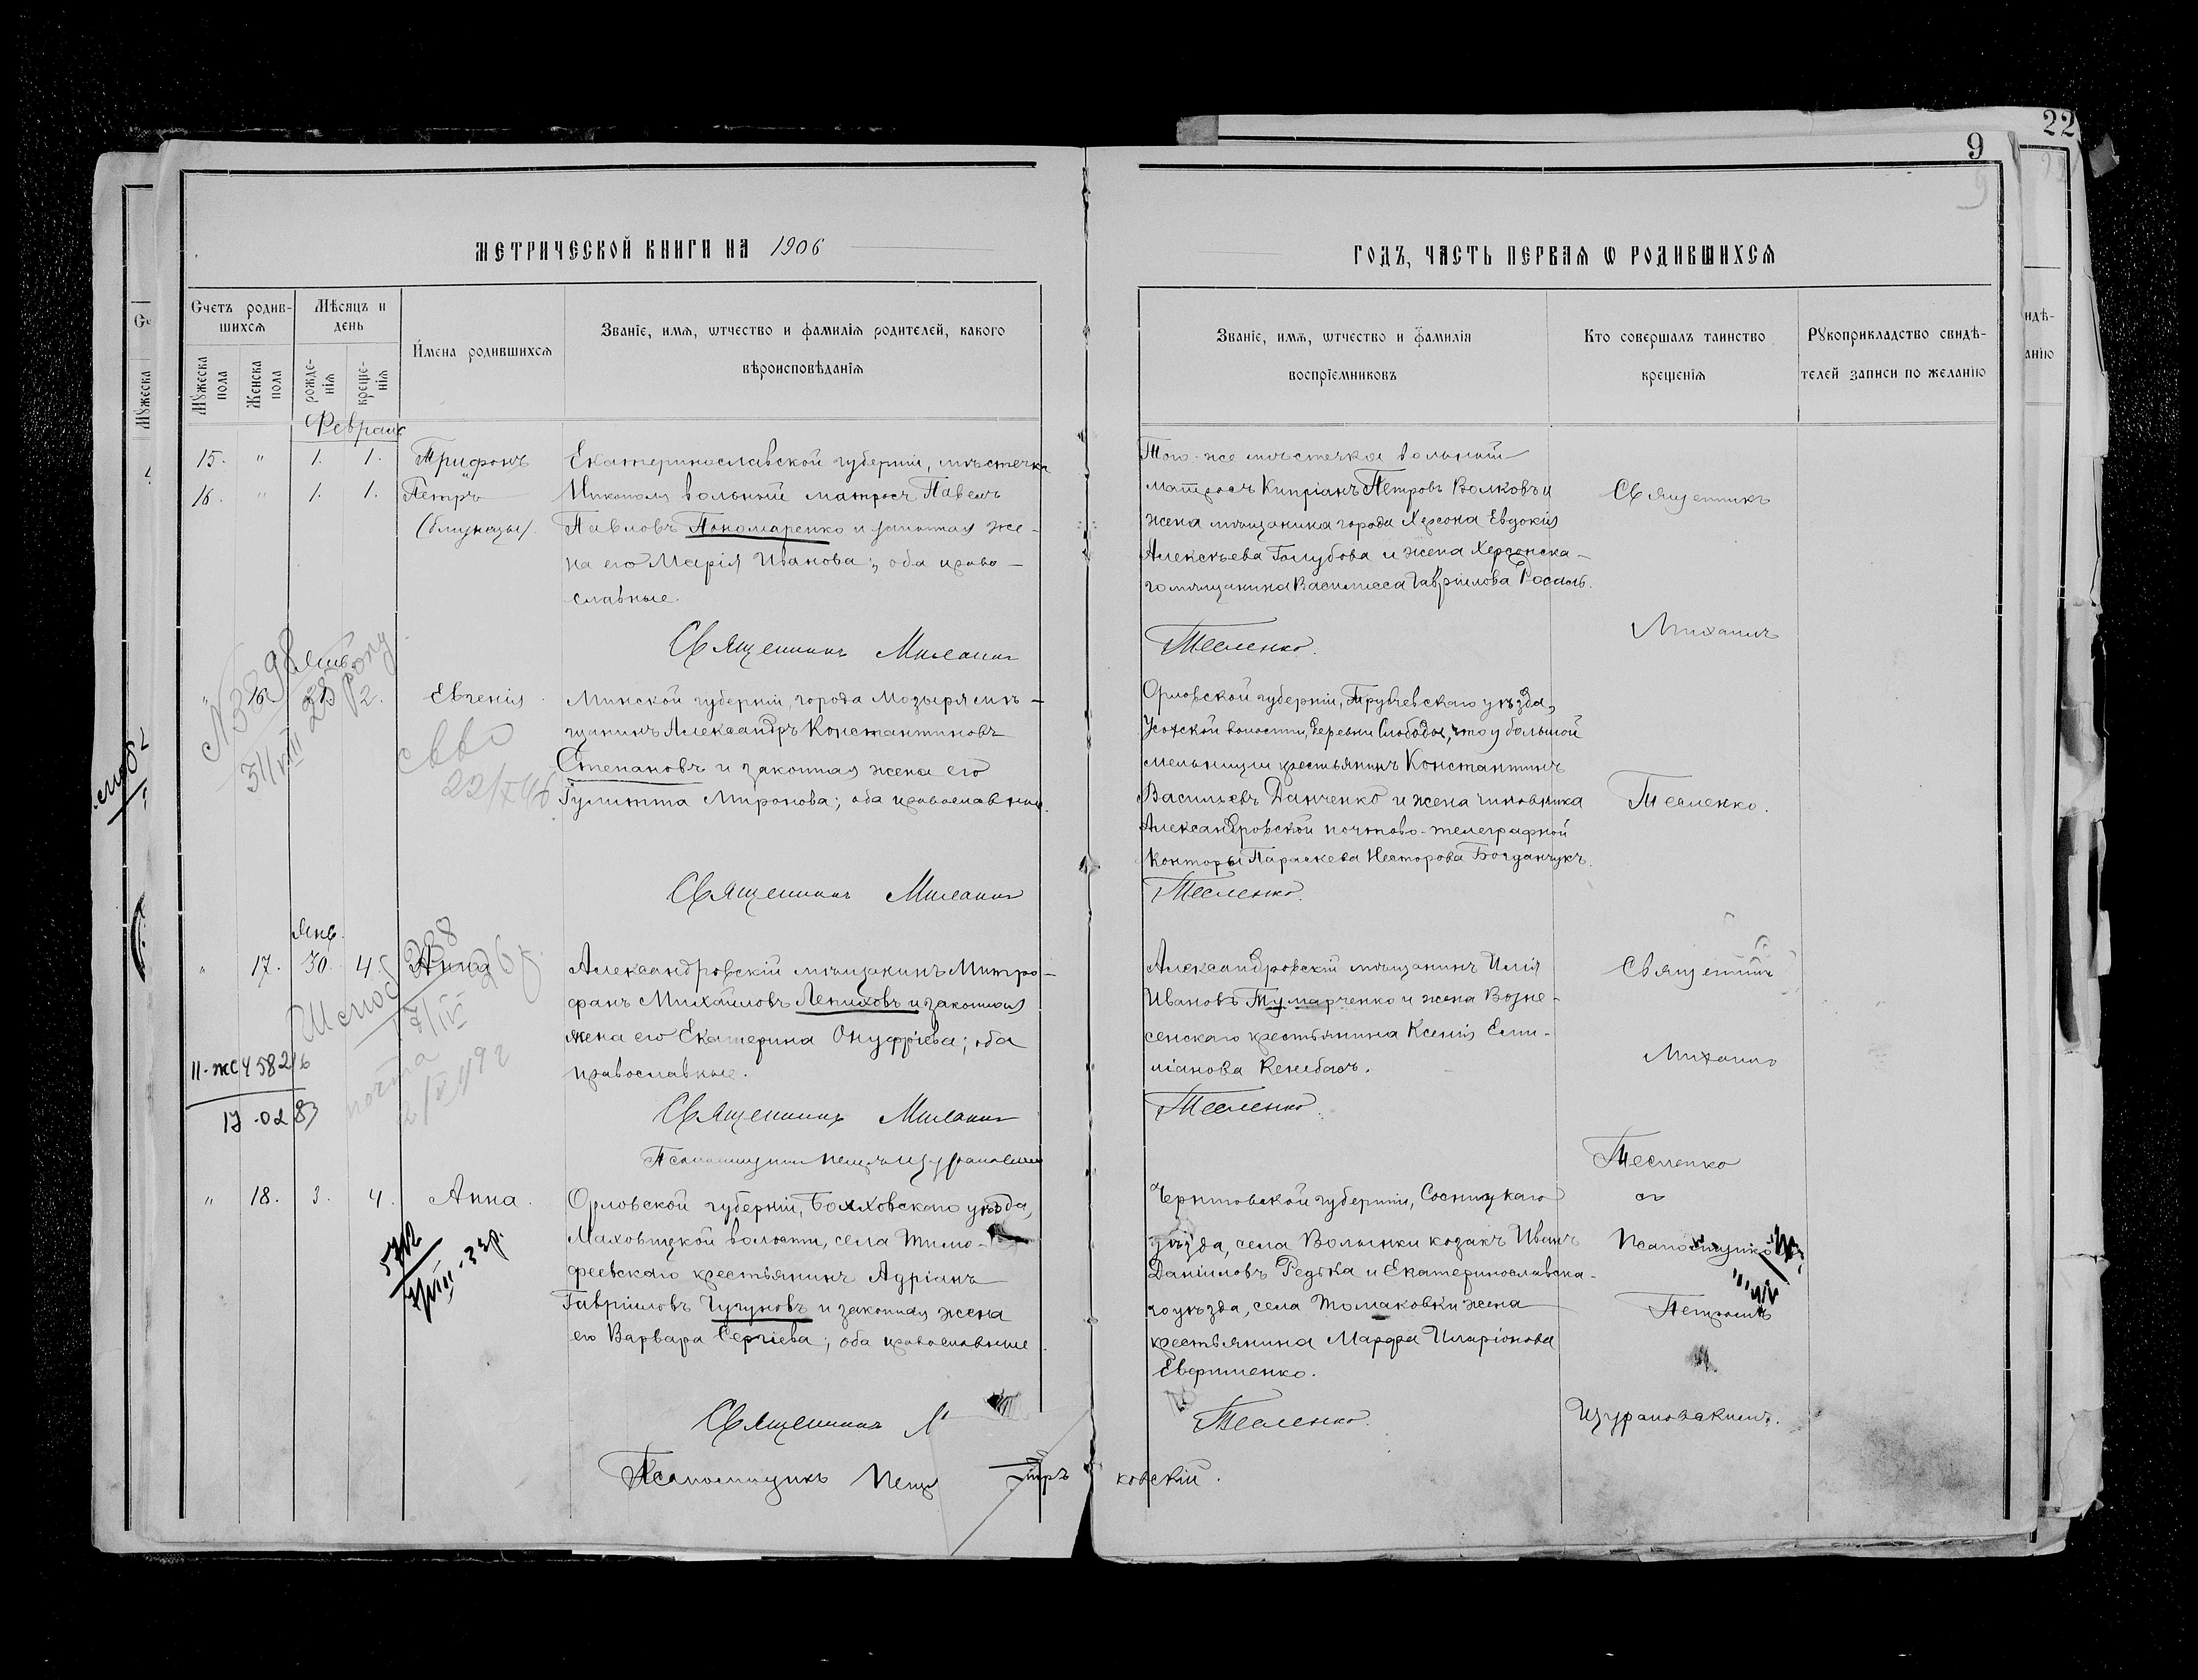 22
9
МЕТРИЧЕСКОЙ КНИГИ НА 1906
ГОДЪ, ЧАСТЬ ПЕРВАЯ Ѡ РОДИВШИХСЯ
Счетъ родив-
шихся
Мѣсяцъ и
день
Мужеска
пола
Женска
пола
рожде-
нія
креще-
нія
Имена родившихся
Званіе, имя, ѡтчество и фамилія родителей, какого
вѣроисповѣданія
Званіе, имя, ѡтчество и фамилія
воспріемниковъ
Кто совершалъ таинство
крещенія
Рукоприкладство свидѣ-
телей записи по желанію
Февраль
15. " 1. 1. Трифонъ
16. " 1. 1. Петръ
(близнецы)
Екатеринославской губерніи, мѣстечка
Никополя вольный матросъ Павелъ
Павловъ Пономаренко и законная же-
на его Марія Иванова; оба право-
славные.
Священникъ Михаилъ
Того-же мѣстечка вольный
матросъ Кипріанъ Петровъ Волковъ и
жена мѣщанина города Херсона Евдокія
Алексѣева Голубова и жена Херсонска-
го мѣщанина Василисса Гавріилова
Тесленко.
Священникъ
Михаилъ
Тесленко.
" 16. 2. Евгенія
Минской губерніи, города Мозыря мѣ-
щанинъ Александръ Константиновъ
Степановъ и законная жена его
Іулитта Миронова; оба православные.
Священникъ Михаилъ
Орловской губерніи, Трубчевскаго уѣзда,
волости, деревни Слободы, что у большой
мельницы крестьянинъ Константинъ
Васильевъ Данченко и жена чиновника
Александровской почтово-телеграфной
конторы Параскева Несторова Богданчукъ.
Тесленко.
Янв.
" 17. 30. 4. Анна
Александровскій мѣщанинъ Митро-
фанъ Михайловъ Лепиховъ и законная
жена его Екатерина Онуфріева; оба
православные.
Священникъ Михаилъ
Псаломщикъ Петръ
Александровскій мѣщанинъ Илія
Ивановъ Тумарченко и жена Возне-
сенскаго крестьянина Ксенія Еми-
ліанова
Тесленко.
Священникъ
Михаилъ
Тесленко
съ
Псаломщикомъ
Петромъ
II-ЖС 458216
" 18. 3. 4. Анна.
Орловской губерніи, Болховскаго уѣзда,
Маховицкой волости, села Тимо-
феевскаго крестьянинъ Адріанъ
Гавріиловъ Чугуновъ и законная жена
его Варвара Сергіева; оба православные.
Священникъ
Псаломщикъ
ковскій.
Черниговской губерніи, Сосницкаго
уѣзда, села Волынки козакъ Иванъ
Даніиловъ Редька и Екатеринославска-
го уѣзда, села Томаковки жена
крестьянина Марфа Иларіонова
Евфименко.
Тесленко.